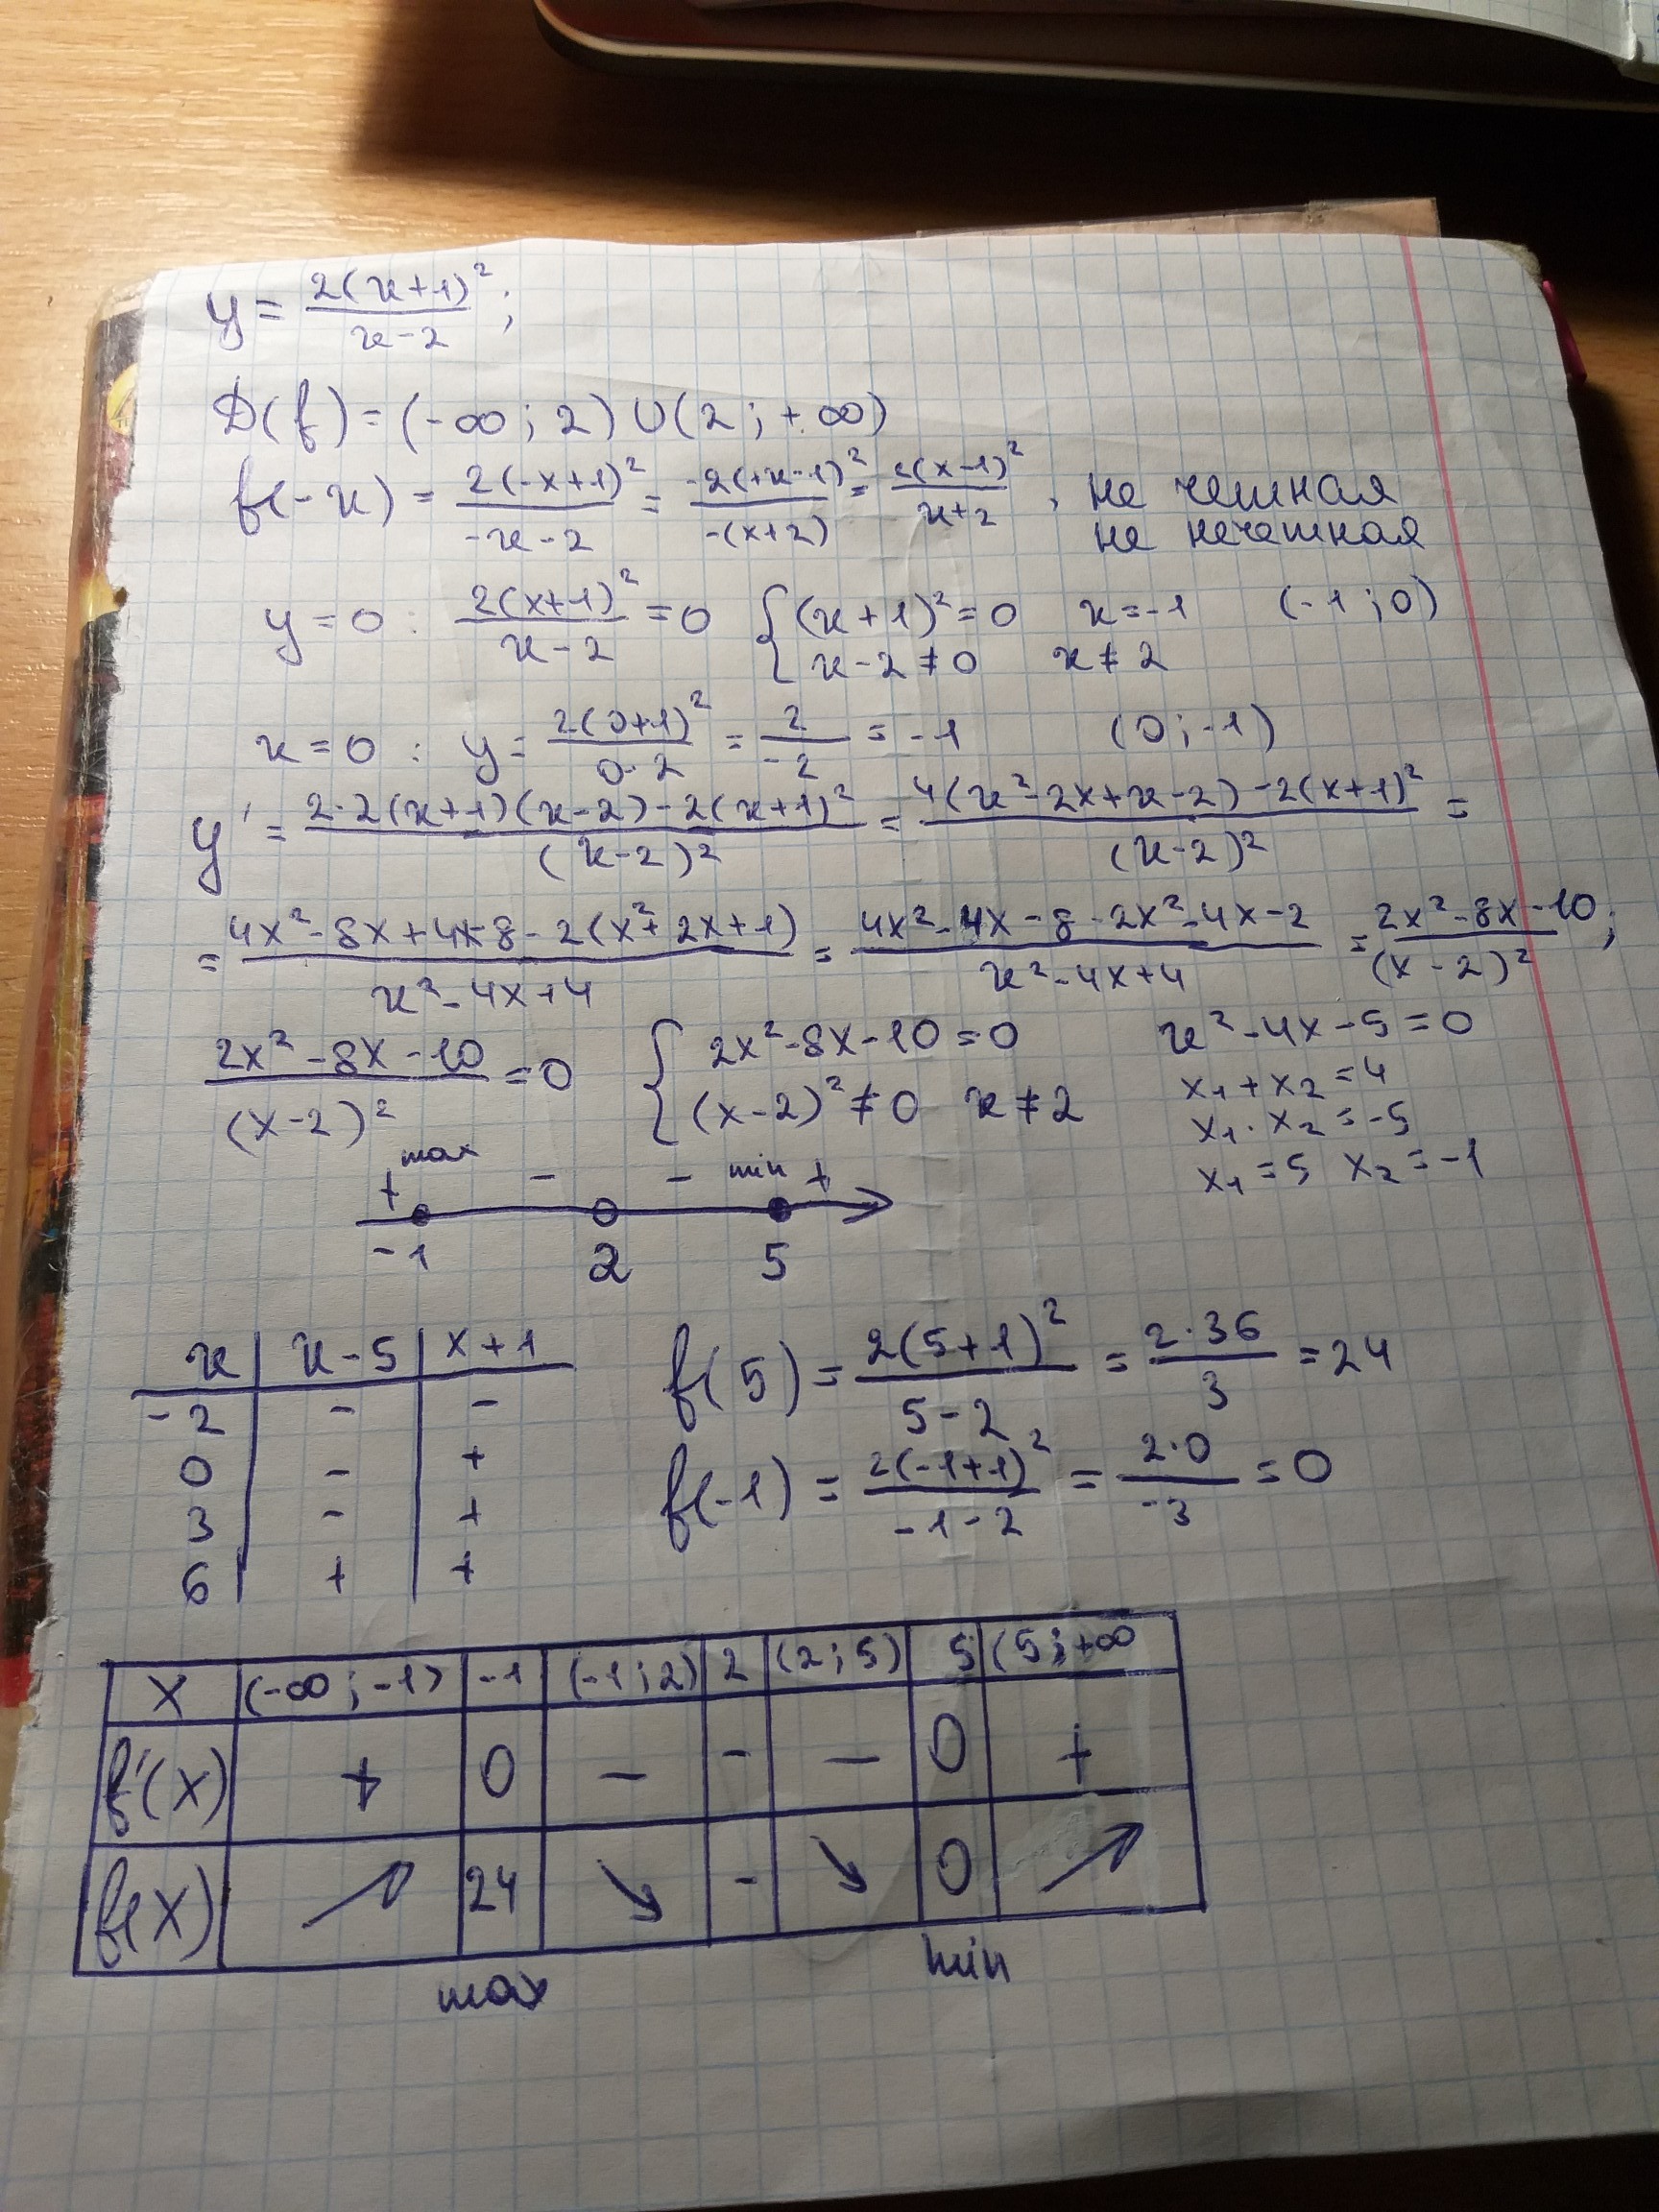 y = 2(x+1)² / (x-2);
D(f) = (-∞; 2) ∪ (2; +∞)
f(-x) = 2(-x+1)² / (-x-2) = -2(+x-1)² / -(x+2) = 2(x-1)² / (x+2), не четная
не нечетная
y=0: 2(x+1)² / (x-2) = 0 { (x+1)²=0 x=-1 (-1;0)
x-2≠0 x≠2
x=0: y = 2(0+1)² / (0-2) = 2 / -2 = -1 (0;-1)
y' = (2·2(x+1)(x-2)-2(x+1)²) / (x-2)² = (4(x²-2x+x-2)-2(x+1)²) / (x-2)² =
= (4x²-8x+4x-8-2(x²+2x+1)) / (x²-4x+4) = (4x²-4x-8-2x²-4x-2) / (x²-4x+4) = (2x²-8x-10) / (x-2)²;
(2x²-8x-10) / (x-2)² = 0 { 2x²-8x-10=0 x²-4x-5=0
(x-2)²≠0 x≠2 x₁+x₂=4
x₁·x₂=-5
x₁=5 x₂=-1
+ max - - min +
-1 2 5
x | x-5 | x+1
-2 | - | -
0 | - | +
3 | - | +
6 | + | +
f(5) = 2(5+1)² / (5-2) = 2·36 / 3 = 24
f(-1) = 2(-1+1)² / (-1-2) = 2·0 / -3 = 0
x | (-∞;-1) | -1 | (-1;2) | 2 | (2;5) | 5 | (5;+∞
f'(x) | + | 0 | - | - | - | 0 | +
f(x) | ↗ | 24 | ↘ | - | ↘ | 0 | ↗
max min